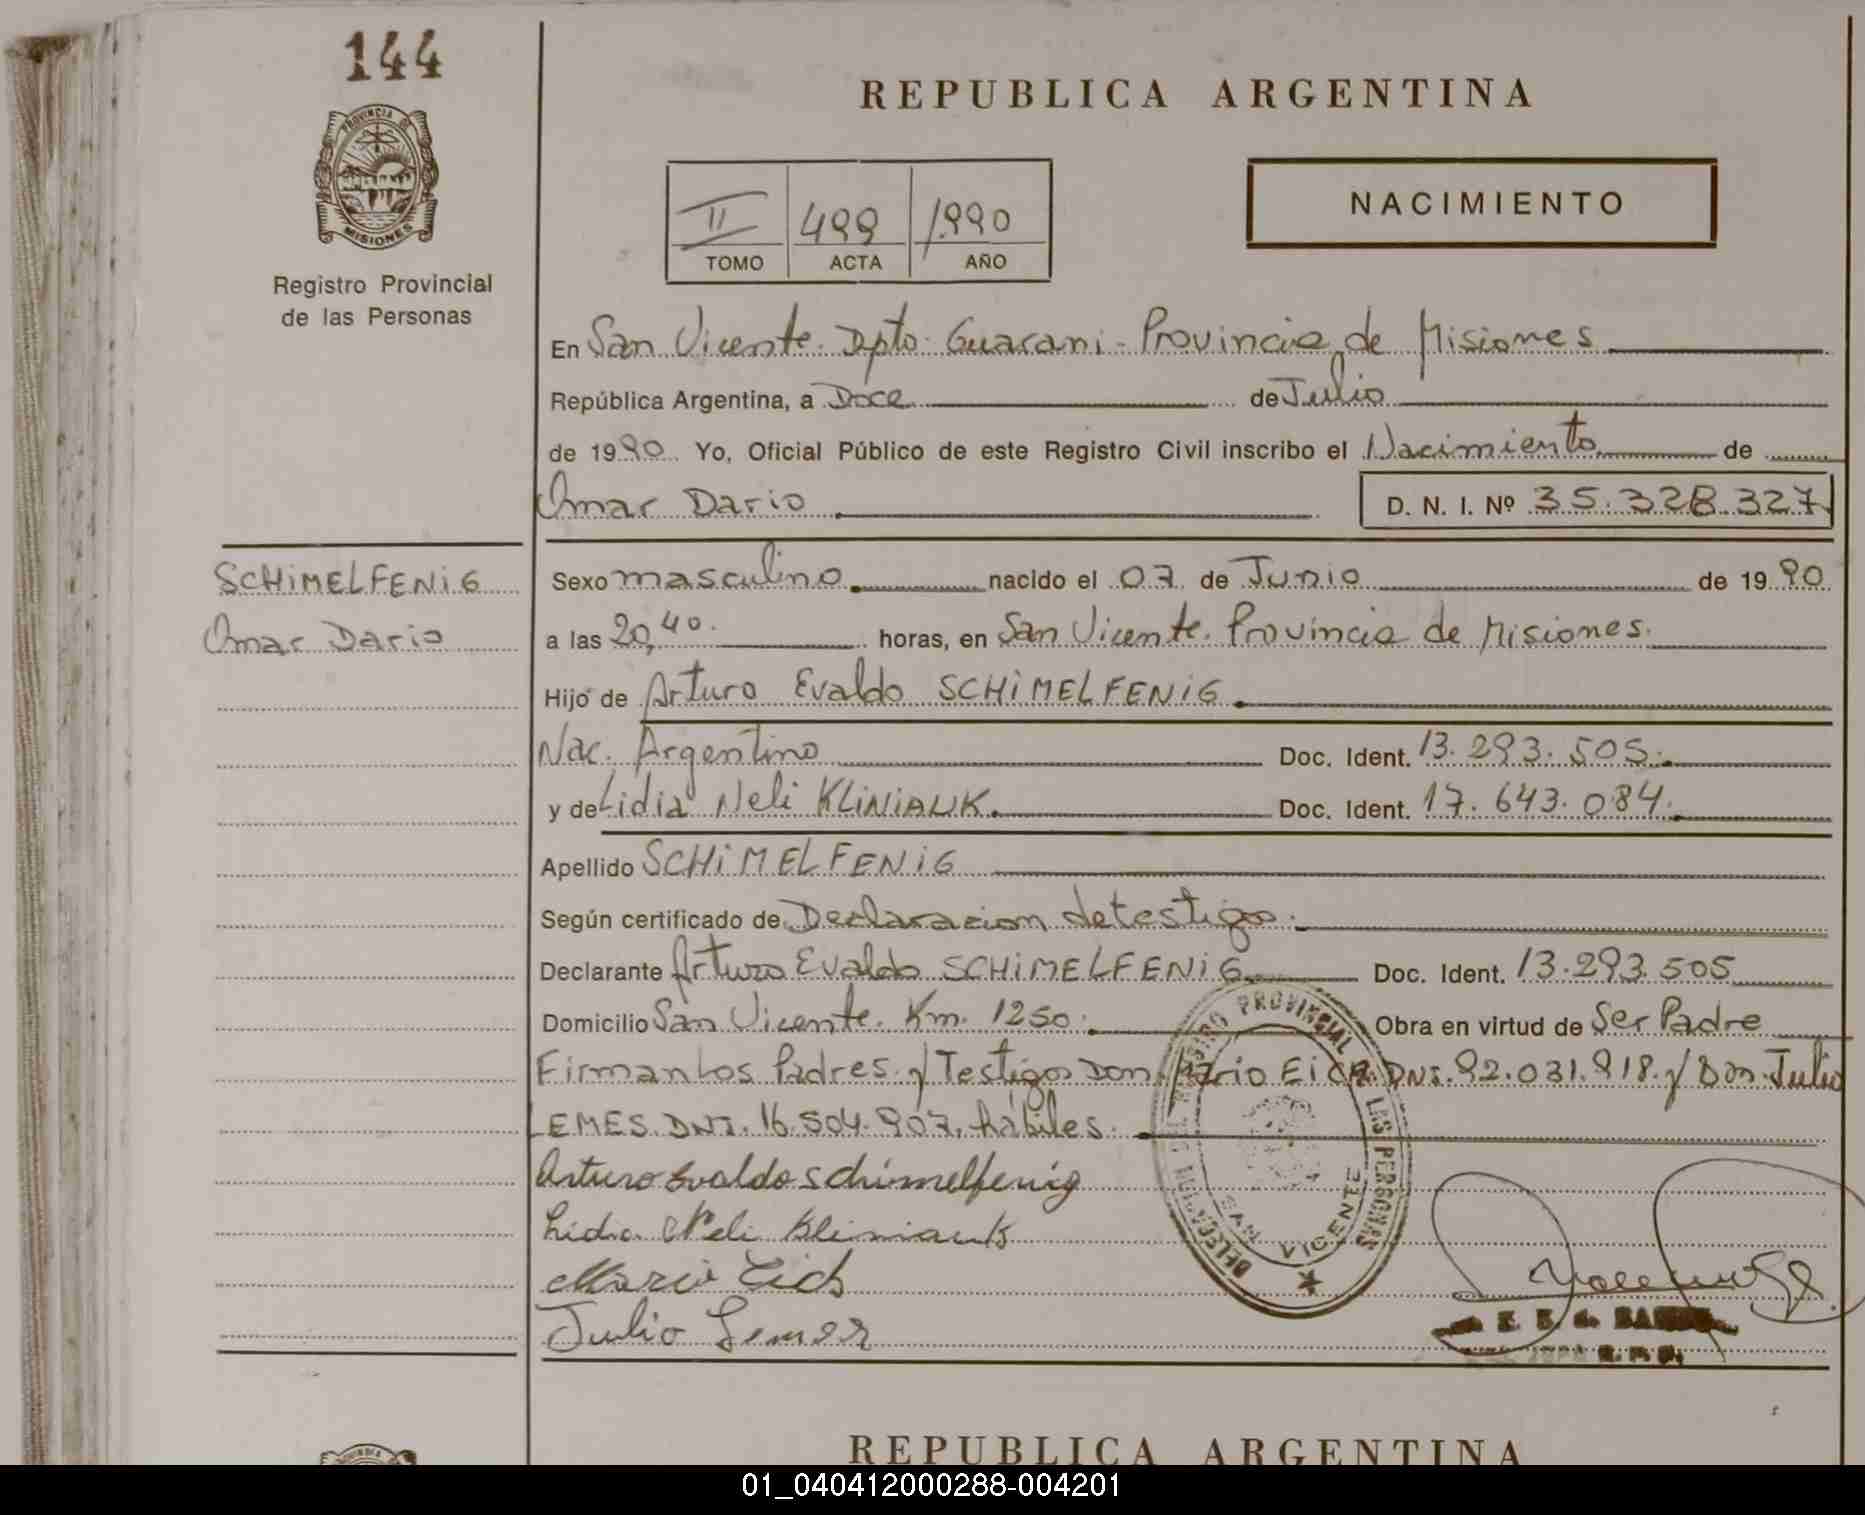 144
PROVINCIA DE
MISIONES
Registro Provincial
de las Personas
REPUBLICA ARGENTINA
NACIMIENTO
II 499 1990
TOMO ACTA AÑO
En San Vicente. Dpto. Guarani - Provincia de Misiones
República Argentina, a Doce de Julio
de 1990. Yo, Oficial Público de este Registro Civil inscribo el Nacimiento de
Omar Dario D. N. I. Nº 35.328.327
SCHiMELFENiG
Omar Dario
Sexo masculino nacido el 07 de Junio de 1990
a las 20,40. horas, en San Vicente. Provincia de Misiones.
Hijo de Arturo Evaldo SCHiMELFENiG
Nac. Argentino Doc. Ident. 13.293.505.
y de Lidia Neli KLiNiAUK. Doc. Ident. 17.643.084.
Apellido SCHiMELFENiG
Según certificado de Declaracion de testigos.
Declarante Arturo Evaldo SCHiMELFENiG Doc. Ident. 13.293.505
Domicilio San Vicente. Km. 1250. Obra en virtud de Ser Padre
Firman Los Padres y Testigos Don Mario EiCH. DNI. 92.031.918. y Don Julio
LEMES. DNI. 16.504.907. hábiles.
Arturo Evaldo Schimelfenig
Lidia Neli Kliniauk
Mario Eich
Julio Lemes
DELEGACION DEL REGISTRO PROVINCIAL DE LAS PERSONAS
SAN VICENTE
REPUBLICA ARGENTINA
01_040412000288-004201